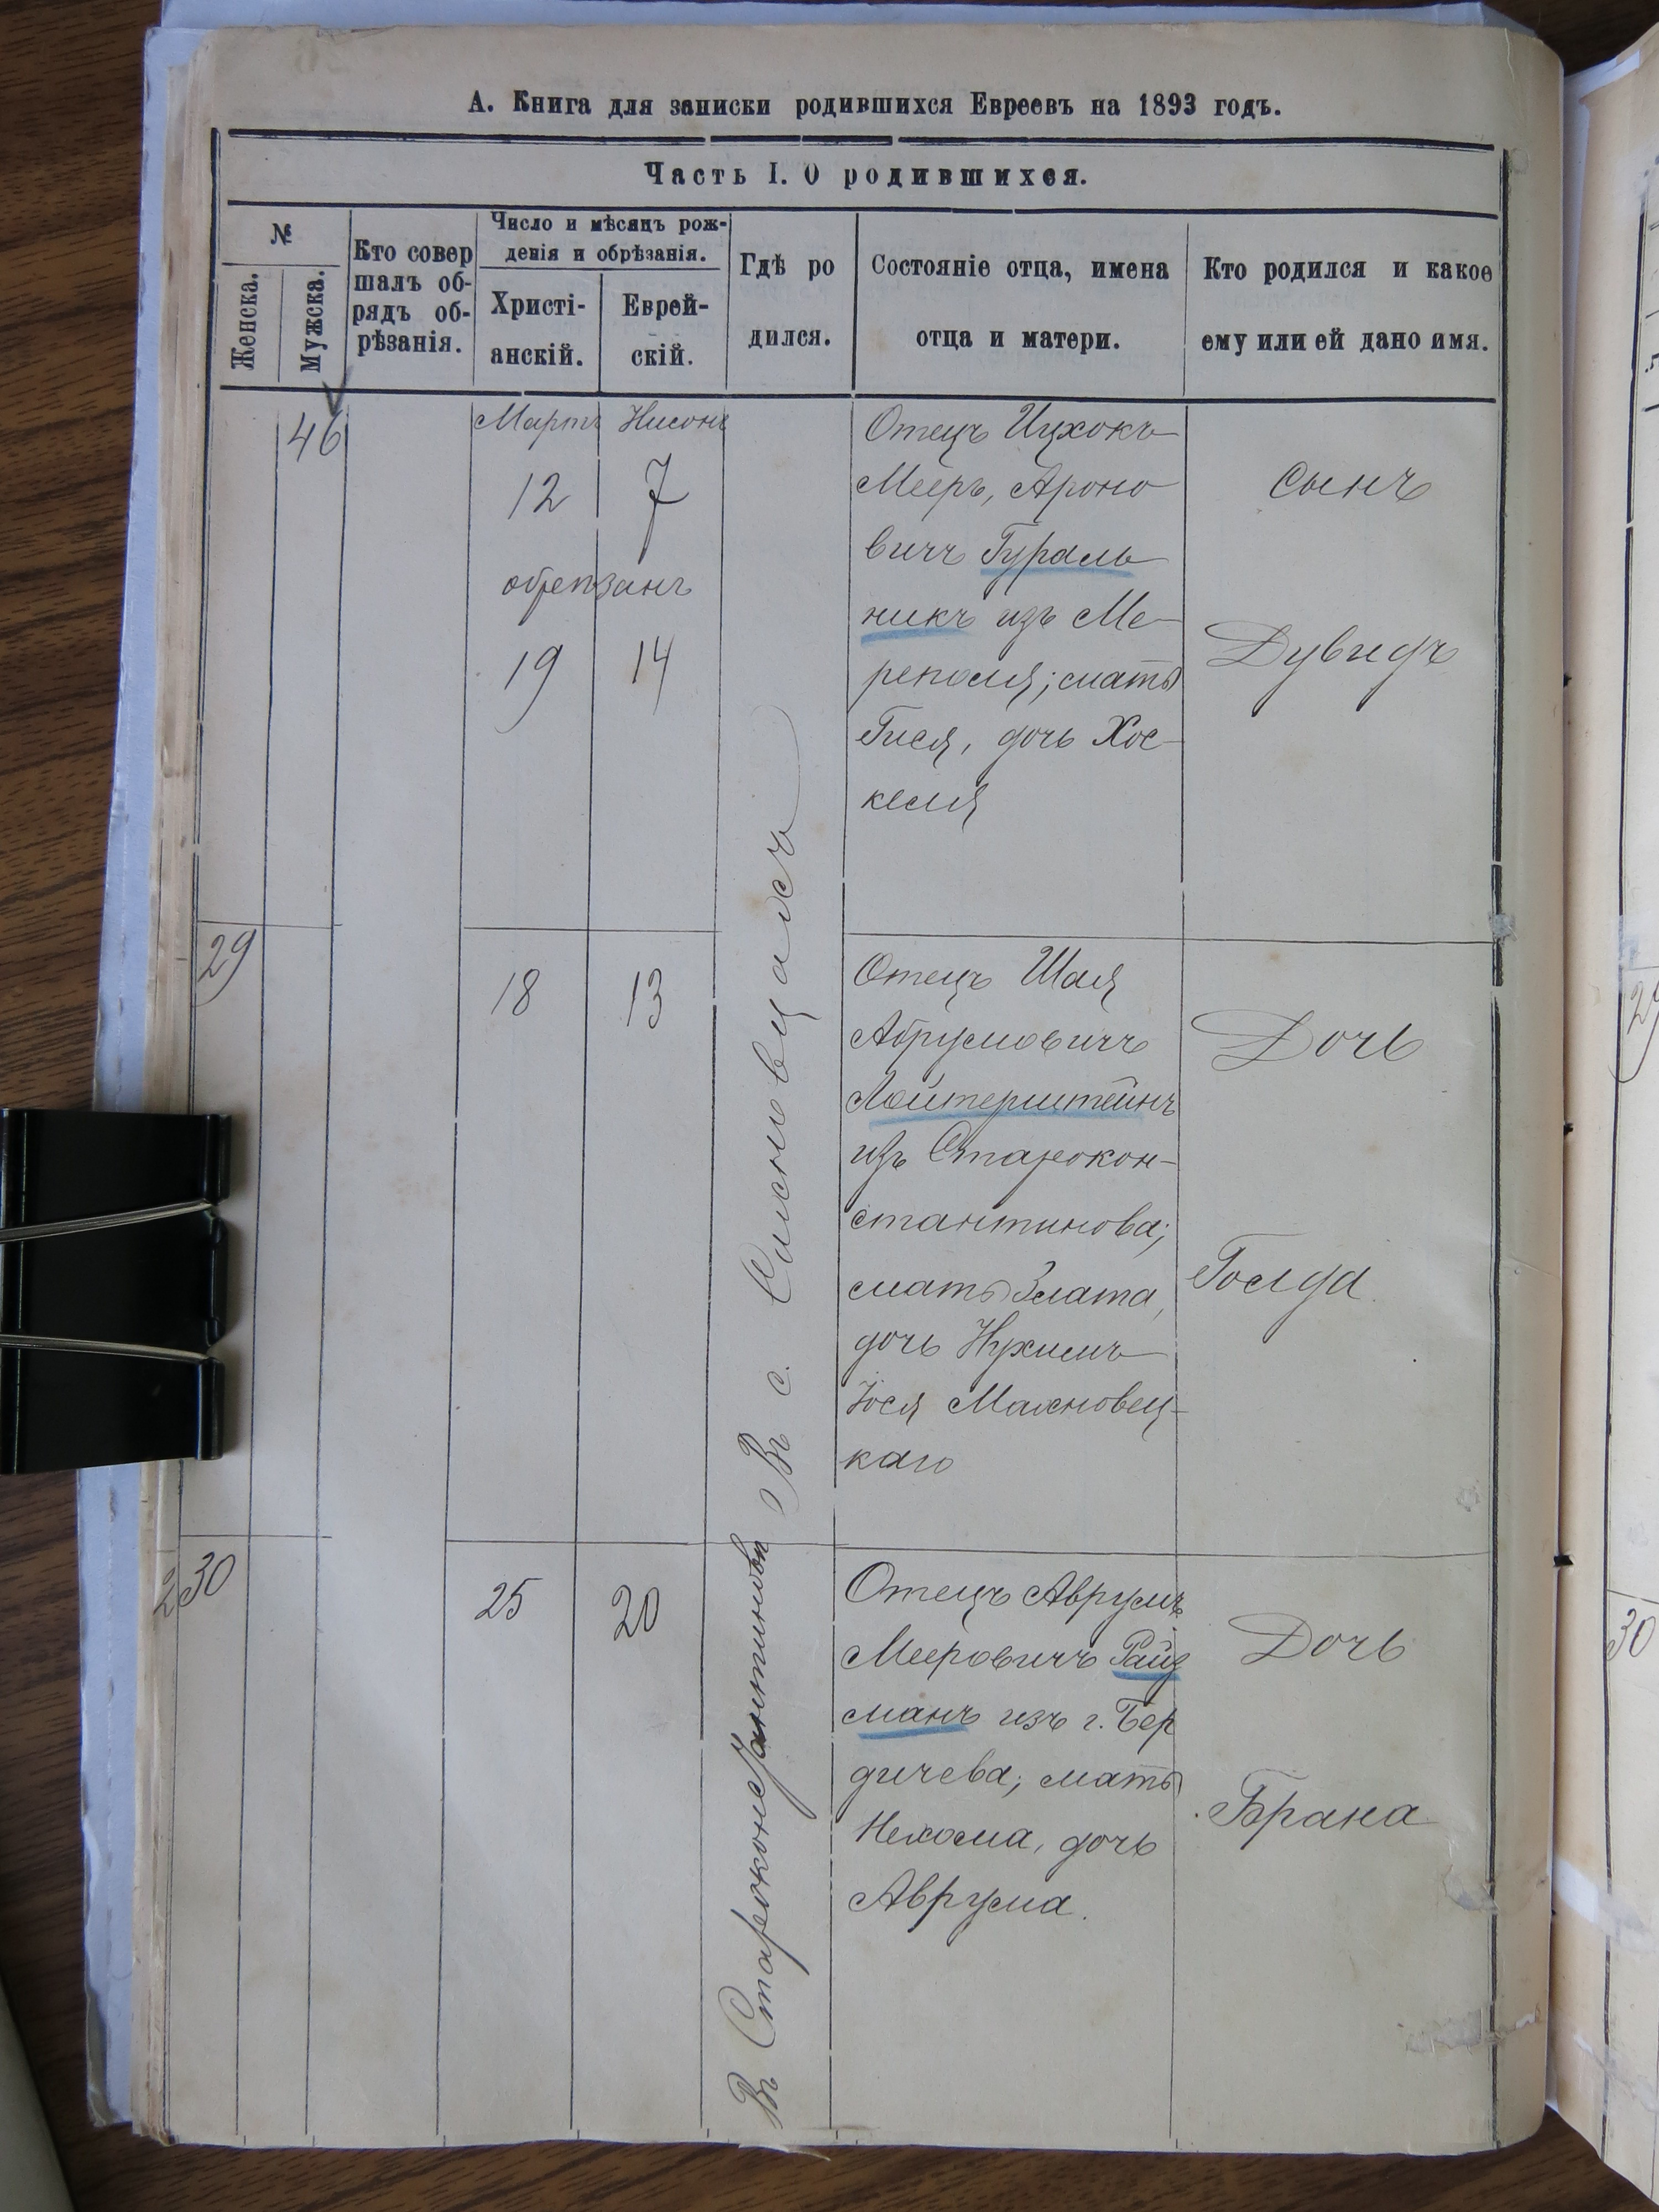 А. Книга для записки родившихся Евреевъ на 1893 годъ.
Часть I. О родившихся.
№
Женска.
Мужска.
Кто совер
шалъ об-
рядъ об-
рѣзанія.
Число и мѣсяцъ рож-
денія и обрѣзанія.
Христі-
анскій.
Еврей-
скій.
Гдѣ ро
дился.
Состояніе отца, имена
отца и матери.
Кто родился и какое
ему или ей дано имя.
46
Мартъ Нисонъ
12 7
обрезанъ
19 14
Отецъ Ицхокъ
Мееръ, Ароно
вичъ Гураль
никъ изъ Ме-
реполя; мать
Гися, дочь Хос-
келя
Сынъ
Дувидъ
29
18 13
Въ с.
Отецъ Шая
Абрумовичъ
Лойтерштейнъ
изъ Старокон-
стантинова;
мать Злата,
дочь Нухимъ
Іося Махновец-
каго
Дочь
Голда
30
25 20
Въ Староконстантиновѣ
Отецъ Аврумъ
Мееровичъ Райз
манъ изъ г. Бер
дичева; мать
Нехома, дочь
Аврума.
Дочь
Брана
29
30